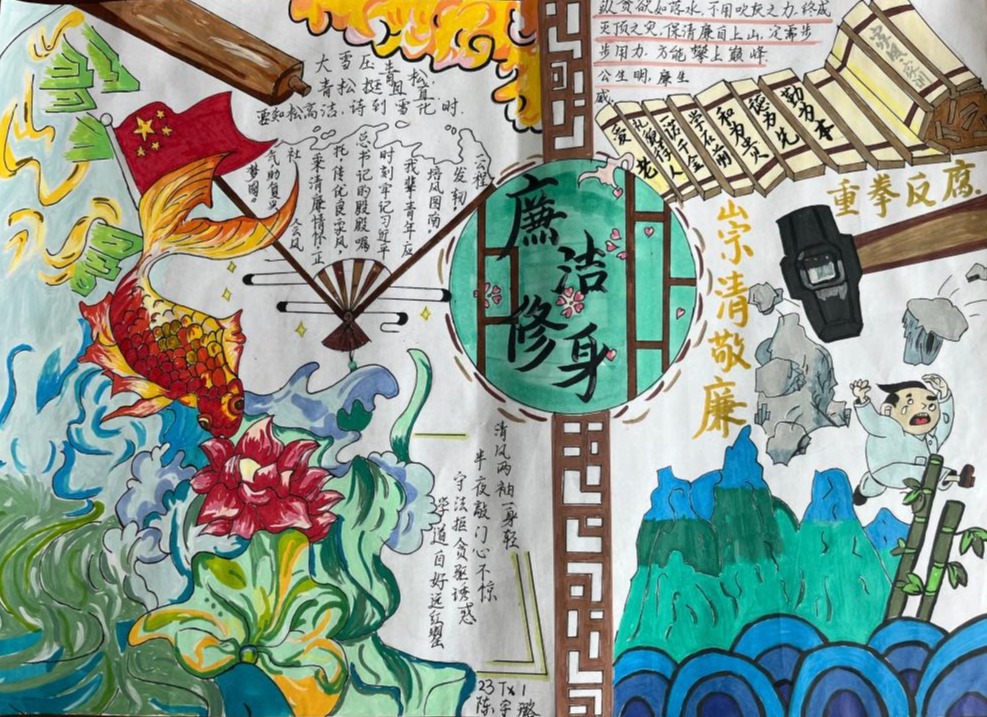 大雪压青松,
青松挺且直。
要知松高洁,诗到雪花时.
公程
发轫,
培风图南,
我辈青年应
时刻牢记习近平
总书记的殷殷嘱
托,传优良家风,
秉清廉情怀,正
社会风
气助复兴
梦圆。
廉洁修身
纵贪欲如落水,不用吹灰之力,终成
灭顶之灾,保清廉自上山,定需步
步用力,方能攀上巅峰.
公生明,廉生
威.
爱老
礼貌待人
一诺千金
学在前
和为贵
德为先
勤为本
重拳反腐.
崇清敬廉
清风两袖一身轻
半夜敲门心不惊
守法拒贪驱诱惑
洁道自好远红墨
23 Tx1
陈宇璐